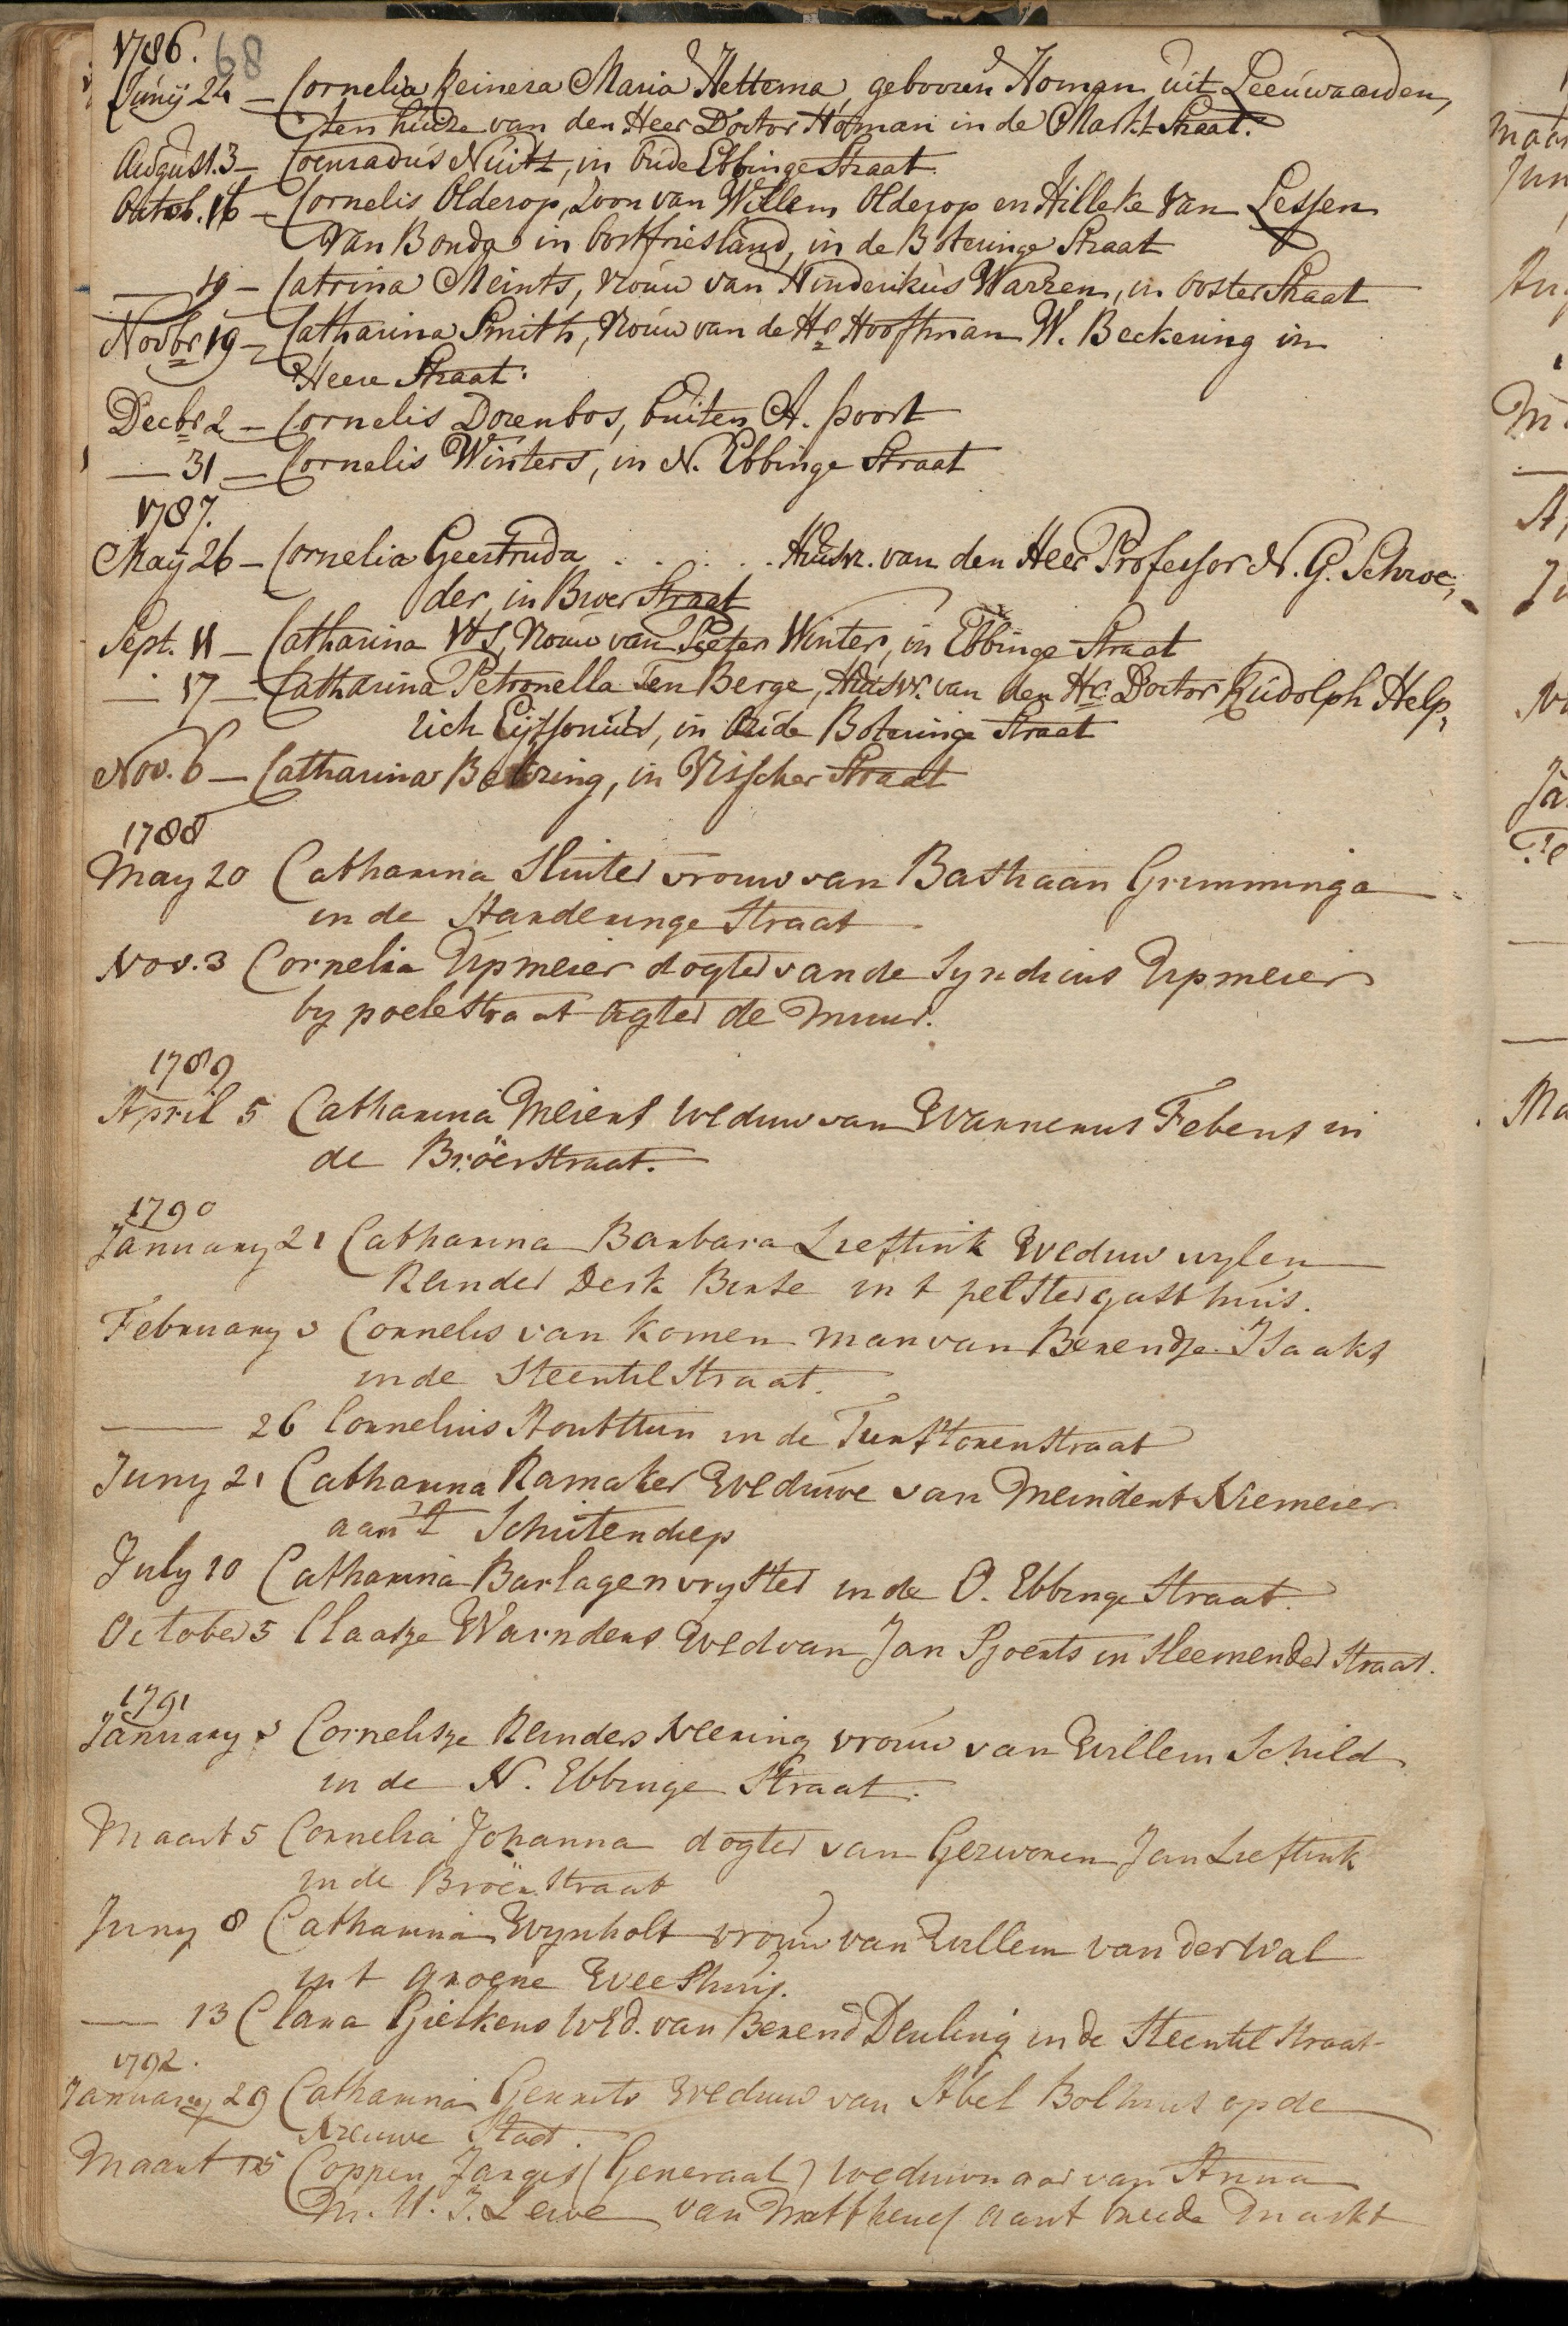 1786. 68
Junij 24 – Cornelia Reinera Maria Hettema, gebooren Homan uit Leeuwaarden,
ten huize van den Heer Doctor Hofman in de Markt Straat.
August. 3 – Coenradus Nuitz, in Oude Ebbinge Straat
Octob. 16 – Cornelis Olderop, Zoon van Willem Olderop en Hilleke van Lessen
van Bonda in Oostfriesland, in de Boteringe Straat
— 19 – Catrina Meints, Vrouw van Hinderikus Warren, in Ooster Straat
Novbr 19 – Catharina Smith, Vrouw van de Hr Hooftman W. Beckering in
Heere Straat.
Decbr 2 – Cornelis Dorenbos, buiten A. poort
— 31 – Cornelis Winters, in N. Ebbinge Straat
1787.
May 26 – Cornelia Geertruda . . . . . Huisvr. van den Heer Professor N. G. Schroe,
der, in Broer Straat
Sept. 11 – Catharina Vos, Vrouw van Pieter Winter, in Ebbinge Straat
— 17 – Catharina Petronella Ten Berge, Huisvr. van den Hr. Doctor Rudolph Help,
rich Eijssonius, in Oude Boteringe Straat
Nov. 6 – Catharina Betzing, in Visscher Straat
1788
May 20 Catharina Sluiter vrouw van Bastiaan Grimminga
in de Harderinge Straat
Nov. 3 Cornelia Upmeier dogter van de Syndicus Upmeier
by poelestraat agter de Muur.
1789
April 5 Catharina Meiers Weduw van Warnerus Febens in
de Bröerstraat.
1790
January 21 Catharina Barbara Lieftink Weduw wylen
Reinder Derk Binse in t pelstergasthuis.
February 3 Cornelis van Komen man van Berendje Isaaks
in de Steentilstraat.
— 26 Cornelius Houttuin in de Turftorenstraat
Juny 21 Catharina Ramaker Weduwe van Meindert Niemeier
aan 't Schuitendiep
July 10 Catharina Barlagen vryster in de O. Ebbinge Straat.
October 5 Claasje Warnders Wed van Jan Sjoerts in Sleemender Straat.
1791
January 3 Cornelisje Reinders Neering vrouw van Willem Schild
in de N. Ebbinge Straat.
Maart 5 Cornelia Johanna dogter van Gezworen Jan Lieftink
in de Bröer Straat
Juny 8 Catharina Wynholt vrouw van Willem van der Wal
in t groene Weeshuis.
— 13 Clara Gielkens Wed. van Berend Deuling in de Steentil straat
1792.
January 29 Catharina Gerrits Weduw van Abel Bolhuis op de
Nieuwe Stad.
Maart 15 Coppen Jarges (Generaal) weduwnaar van Anna
M. U. J. Lewe van Mattheus aant breede Markt